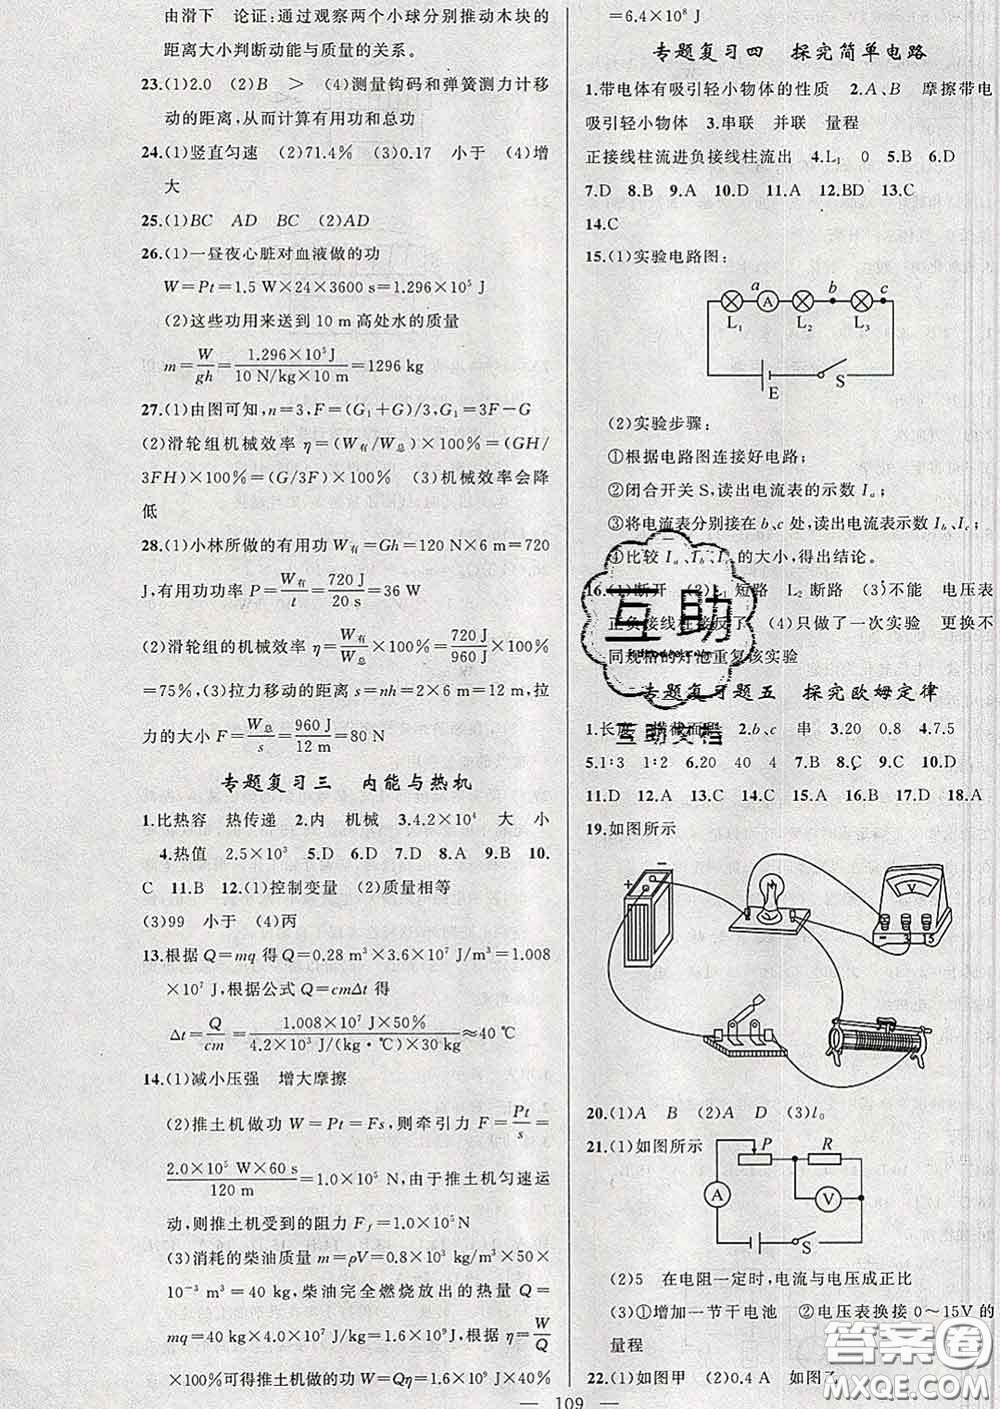 由滑下　论证:通过观察两个小球分别推动木块的
距离大小判断动能与质量的关系。
23.(1)2.0　(2)B　>　(4)测量钩码和弹簧测力计移
动的距离,从而计算有用功和总功
24.(1)竖直匀速　(2)71.4%　(3)0.17　小于　(4)增
大
25.(1)BC　AD　BC　(2)AD
26.(1)一昼夜心脏对血液做的功
W=Pt=1.5 W×24×3600 s=1.296×10⁵ J
(2)这些功用来送到 10 m高处水的质量
m=W/gh=1.296×10⁵J/10 N/kg×10 m=1296 kg
27.(1)由图可知,n=3,F=(G₁+G)/3,G₁=3F-G
(2)滑轮组机械效率 η=(W有/W总)×100%=(GH/
3FH)×100%=(G/3F)×100%　(3)机械效率会降
低
28.(1)小林所做的有用功W有=Gh=120 N×6 m=720
J,有用功功率 P=W有/t=720 J/20 s=36 W
(2)滑轮组的机械效率 η=W有/W总×100%=720 J/960 J×100%
=75%,(3)拉力移动的距离 s=nh=2×6 m=12 m,拉
力的大小 F=W总/s=960 J/12 m=80 N
专题复习三　内能与热机
1.比热容　热传递　2.内　机械　3.4.2×10⁴　大　小
4.热值　2.5×10³　5.D　6.D　7.D　8.A　9.B　10.
C　11.B　12.(1)控制变量　(2)质量相等
(3)99　小于　(4)丙
13.根据 Q=mq 得 Q=0.28 m³×3.6×10⁷ J/m³=1.008
×10⁷ J,根据公式 Q=cmΔt 得
Δt=Q/cm=1.008×10⁷ J×50%/4.2×10³ J/(kg·℃)×30 kg≈40 ℃
14.(1)减小压强　增大摩擦
(2)推土机做功 W=Pt=Fs,则牵引力 F=Pt/s=
2.0×10⁵ W×60 s/120 m=1.0×10⁵ N,由于推土机匀速运
动,则推土机受到的阻力 Ff=1.0×10⁵N
(3)消耗的柴油质量 m=ρV=0.8×10³ kg/m³×50×
10⁻³ m³=40 kg,柴油完全燃烧放出的热量 Q=
mq=40 kg×4×10⁷J/kg=1.6×10⁹J,根据 η=W/Q
×100%可得推土机做的功 W=Qη=1.6×10⁹J×40%
=6.4×10⁸ J
专题复习四　探究简单电路
1.带电体有吸引轻小物体的性质　2.A、B　摩擦带电
吸引轻小物体　3.串联　并联　量程
正接线柱流进负接线柱流出　4.L₁　0　5.B　6.D
7.D　8.B　9.A　10.D　11.A　12.BD　13.C
14.C
15.(1)实验电路图:
a　b　c
A
L₁　L₂　L₃
E　S
(2)实验步骤:
①根据电路图连接好电路;
②闭合开关 S,读出电流表的示数 Iₐ;
③将电流表分别接在 b、c 处,读出电流表示数 I_b、I_c;
④比较 Iₐ、I_b、I_c的大小,得出结论。
16.(1)断开　(2)L₁ 短路　L₂ 断路　(3)不能　电压表
正负接线柱接反了　(4)只做了一次实验　更换不
同规格的灯泡重复该实验
专题复习题五　探究欧姆定律
1.长度　横截面积　2.b、c　串　3.20　0.8　4.7.5
5.1∶3　1∶2　6.20　40　4　7.B　8.C　9.C　10.D
11.D　12.A　13.C　14.C　15.A　16.B　17.D　18.A
19.如图所示
+　-
V
-　3　15
20.(1)A　B　(2)A　D　(3)l₀
21.(1)如图所示
P　R
A　V
S
(2)5　在电阻一定时,电流与电压成正比
(3)①增加一节干电池　②电压表换接 0～15V 的
量程
22.(1)如图甲　(2)0.4 A　如图乙
— 109 —
互助
互助文档
答案圈
MXQE.COM